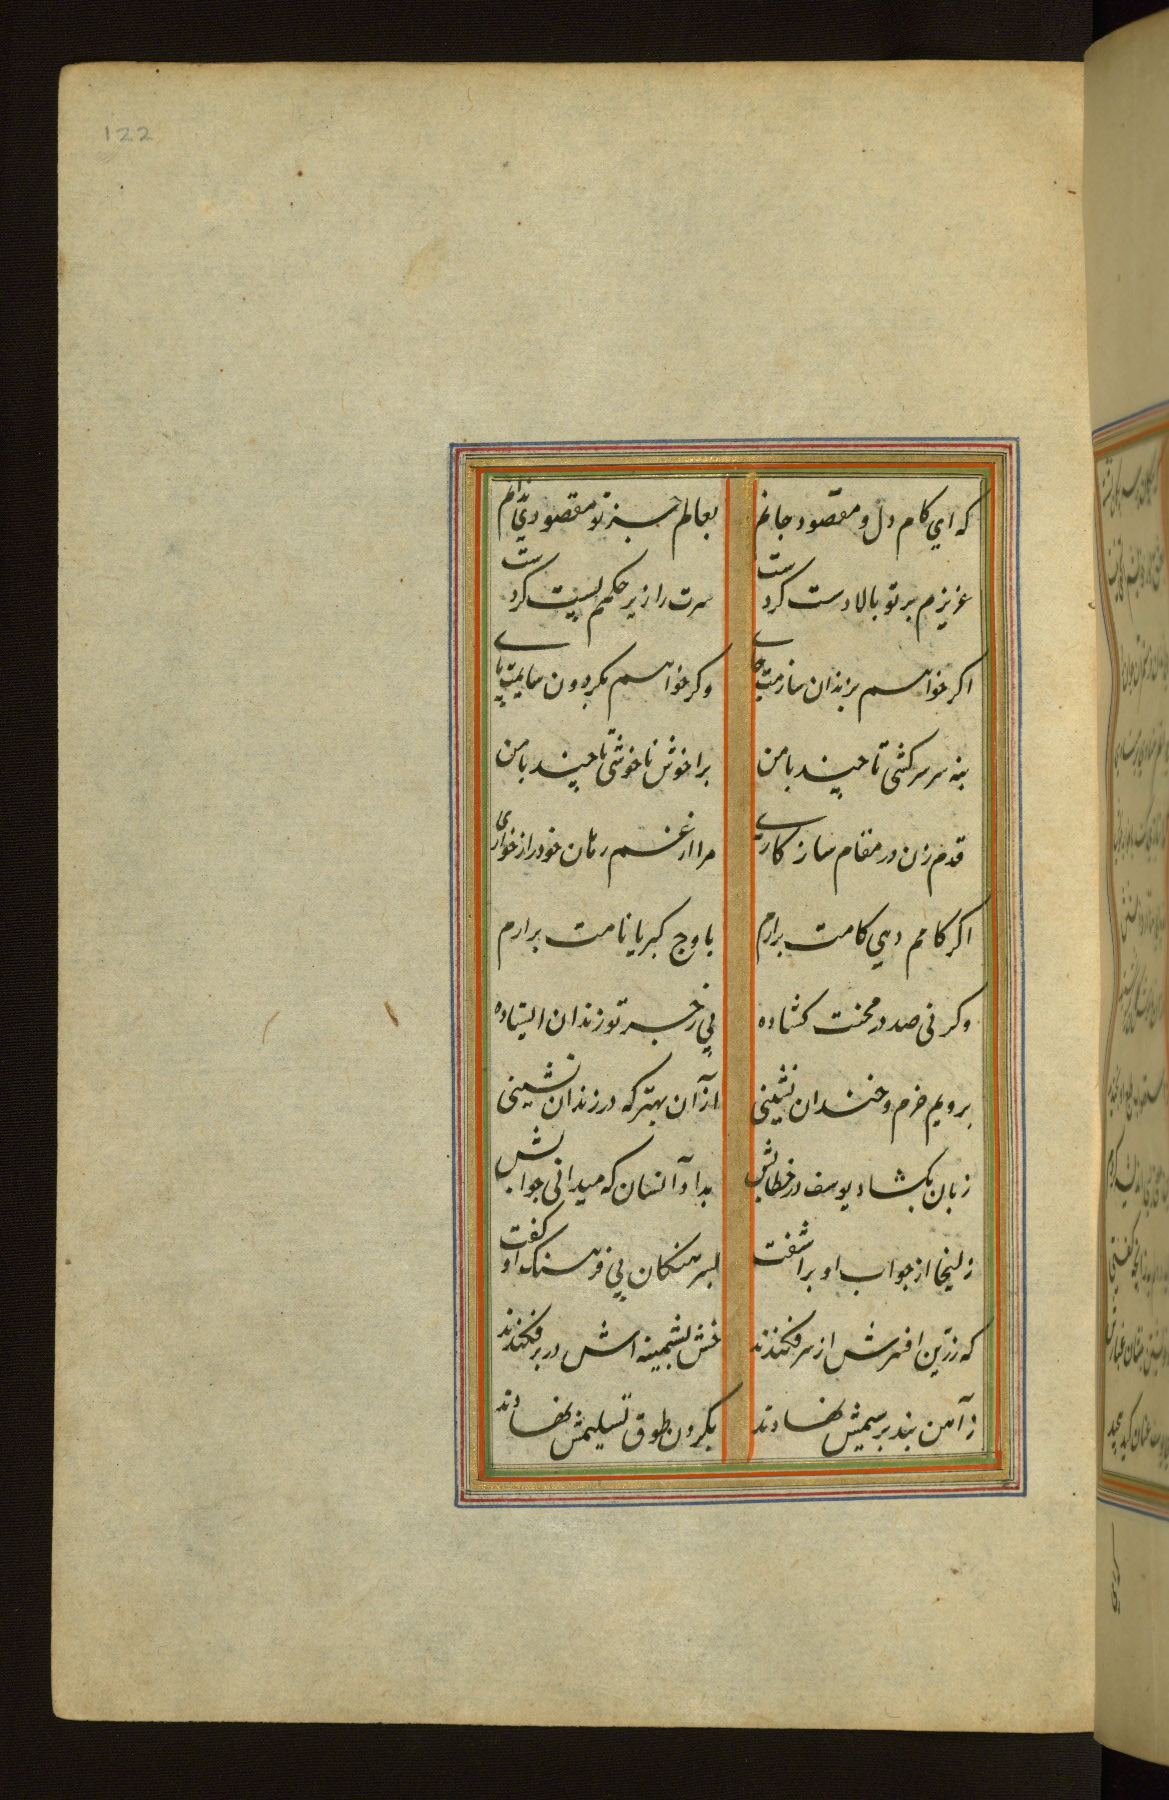 122
که ای کام دل و مقصود جانم بعالم جز تو مقصودی ندانم
عزیزم بر تو بالادست کردست سرت را زیر حکمم پست کردست
اکر خواهم بزندان سازمت جای وکر خواهم بکردون سایمت پای
بنه سر سرکشی تا چند با من برا خوش ناخوشی تا چند با من
قدم زن در مقام سازکاری مرا از غم رهان خود را ز خواری
اکر کامم دهی کامت برارم باوج کبریا نامت برارم
وکر نی صد در محنت کشاده پی زجر تو زندان ایستاده
برویم خرم و خندان نشینی از آن بهتر که در زندان نشینی
زبان بکشاد یوسف در خطابش بداد آنسان که میدانی جوابش
زلیخا از جواب او براشفت بسرهنکان بی فرهنک او کفت
که زرین افسرش از سر فکندند خشن پشمینه اش در بر فکندند
ز آهن بند بر سیمش نهادند بکردن طوق تسلیمش نهادند